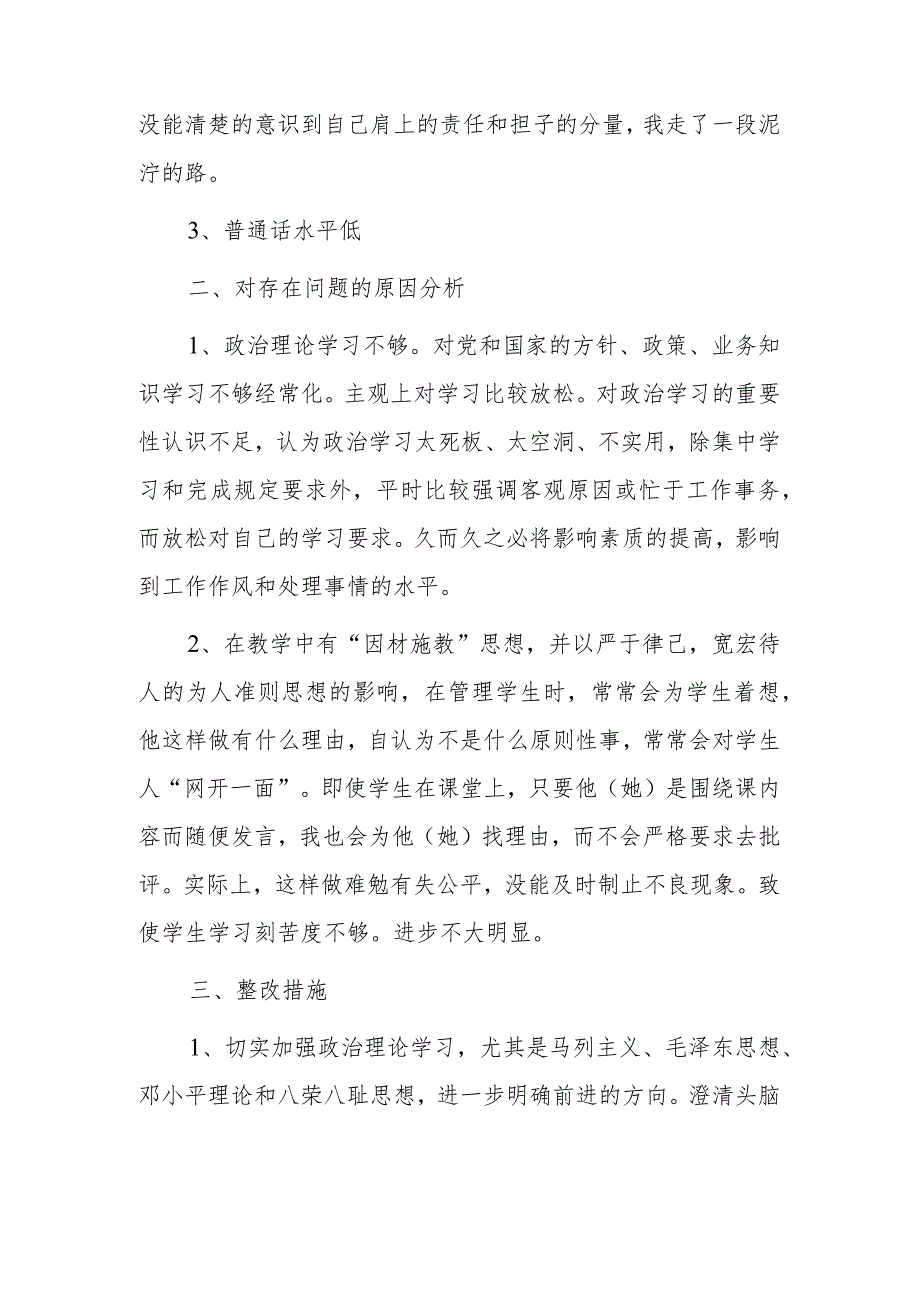 没能清楚的意识到自己肩上的责任和担子的分量，我走了一段泥
泞的路。
3、普通话水平低
二、对存在问题的原因分析
1、政治理论学习不够。对党和国家的方针、政策、业务知
识学习不够经常化。主观上对学习比较放松。对政治学习的重要
性认识不足，认为政治学习太死板、太空洞、不实用，除集中学
习和完成规定要求外，平时比较强调客观原因或忙于工作事务，
而放松对自己的学习要求。久而久之必将影响素质的提高，影响
到工作作风和处理事情的水平。
2、在教学中有“因材施教”思想，并以严于律己，宽宏待
人的为人准则思想的影响，在管理学生时，常常会为学生着想，
他这样做有什么理由，自认为不是什么原则性事，常常会对学生
人“网开一面”。即使学生在课堂上，只要他（她）是围绕课内
容而随便发言，我也会为他（她）找理由，而不会严格要求去批
评。实际上，这样做难勉有失公平，没能及时制止不良现象。致
使学生学习刻苦度不够。进步不大明显。
三、整改措施
1、切实加强政治理论学习，尤其是马列主义、毛泽东思想、
邓小平理论和八荣八耻思想，进一步明确前进的方向。澄清头脑